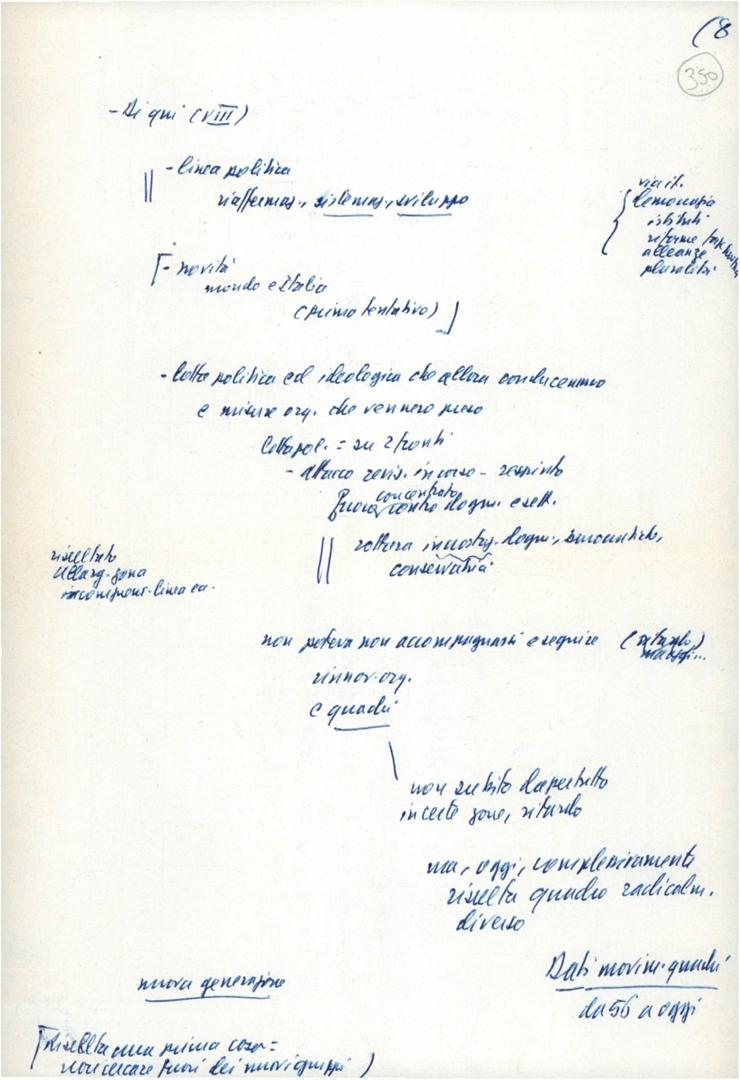 (8
350
- Di qui (VIII)
- linea politica
riaffermaz., sistemaz., sviluppo
via it.
democrazia
istituti
riforme
alleanze
pluralità
- novità
mondo e Italia
(primo tentativo)
- lotta politica ed ideologica che allora conducemmo
e misure org. che vennero prese
lotta pol. = su 2 fronti
- attacco revis. in corso - respinto
fuoco concentrato contro dogm. e sett.
rottura incrostaz. dogm.,
conservatrici
risultato
allarg. zona
non poteva non accompagnarsi e seguire (ritardo)
rinnov. org.
e quadri
non subito dapertutto
in certe zone, ritardo
ma, oggi, complessivamente
risulta quadro radicalm.
diverso
Dati movim. quadri
da 56 a oggi
nuova generazione
[risulta una prima cosa =
non cercare fuori dei nuovi gruppi)